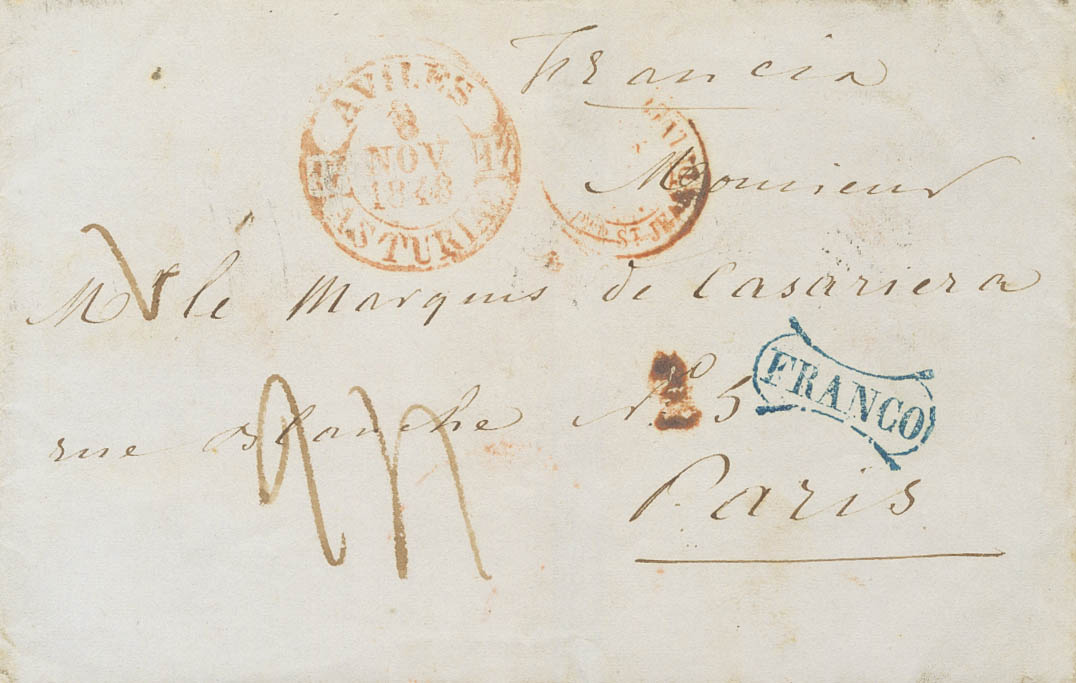 Francia
AVILES
8
NOV
1848
ASTURIAS
ST. JEAN
Monsieur
Mr le Marquis de Casariera
rue Blanche No. 5
1
FRANCO
Paris